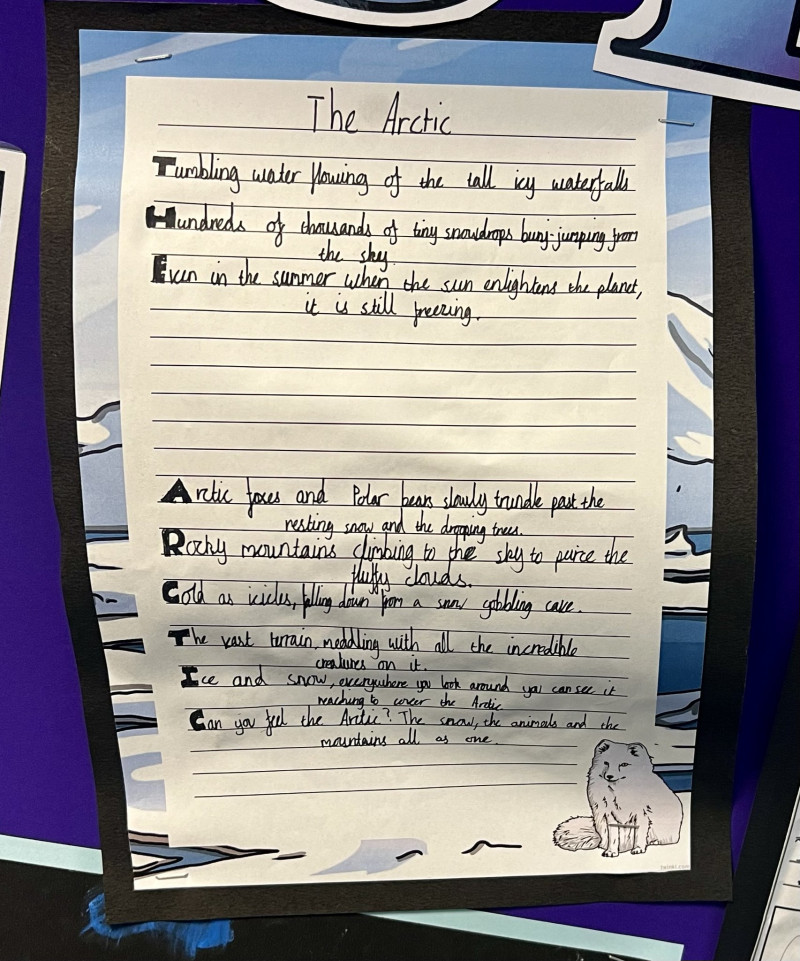 The Arctic
Tumbling water flowing of the tall icy waterfalls
Hundreds of thousands of tiny snowdrops bunj-jumping from
the sky.
Even in the summer when the sun enlightens the planet,
it is still freezing.
Arctic foxes and Polar bears slowly trundle past the
resting snow and the drooping trees.
Rocky mountains climbing to the sky to peirce the
fluffy clouds.
Cold as icicles, falling down from a snow gobbling cave.
The vast terrain, meddling with all the incredible
creatures on it.
Ice and snow, everywhere you look around you can see it
reaching to cover the Arctic
Can you feel the Arctic? The snow, the animals and the
mountains all as one.